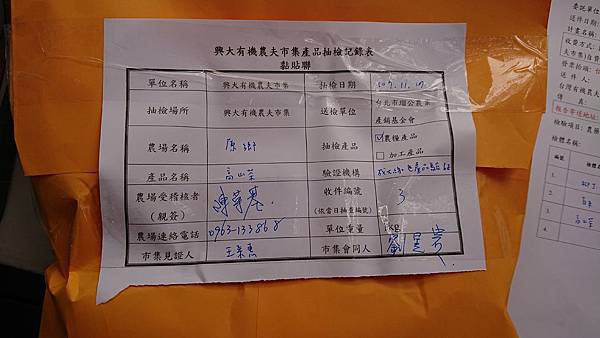 興大有機農夫市集產品抽檢記錄表
黏貼聯
單位名稱 興大有機農夫市集 抽檢日期 107.11.17
抽檢場所 興大有機農夫市集 送檢單位 台北市瑠公農業
產銷基金會
農場名稱 抽檢產品 ☑農糧產品
□ 加工產品
產品名稱 高山菜 驗證機構
農場受稽核者
(親簽)
收件編號 3
(依當日抽查編號)
農場連絡電話 0963-133868 單位重量 1kg
市集見證人 市集會同人
委託單位
送件日期:
計畫名稱:
收費方式:
夫市集)自費
發票抬頭:
送 件 人:
台灣有機農夫
傳 真:
報告寄送地址:
檢驗項目: 農藥
檢體名稱:
編號
1.
2.
3. 高山菜
4.